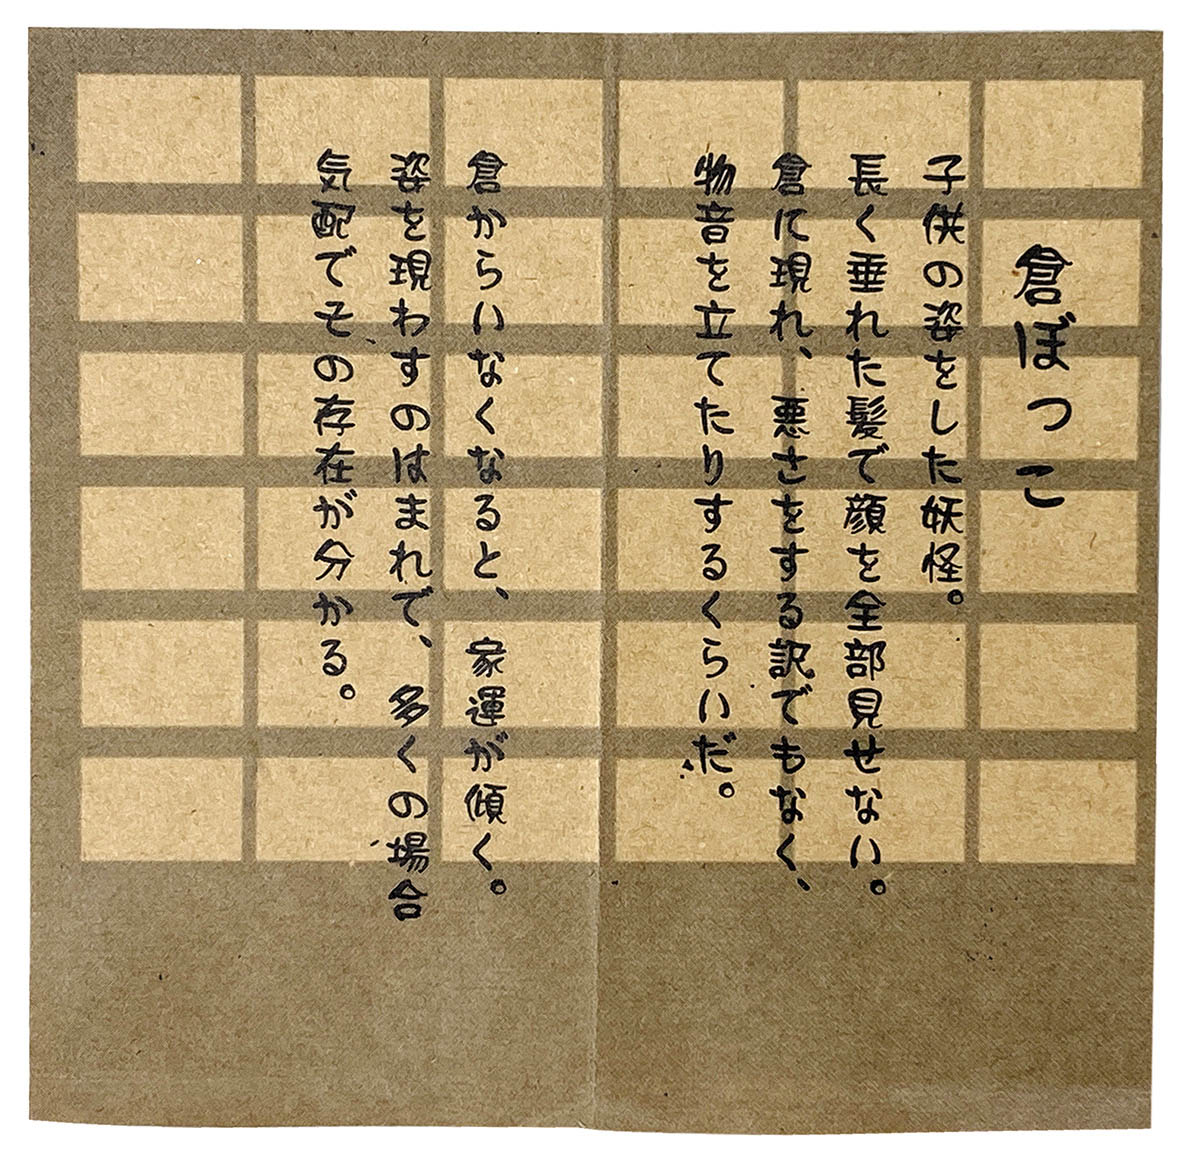 倉ぼっこ
子供の姿をした妖怪。
長く垂れた髪で顔を全部見せない。
倉に現れ、悪さをする訳でもなく、
物音を立てたりするくらいだ。
倉からいなくなると、家運が傾く。
姿を現わすのはまれで、多くの場合
気配でその存在が分かる。